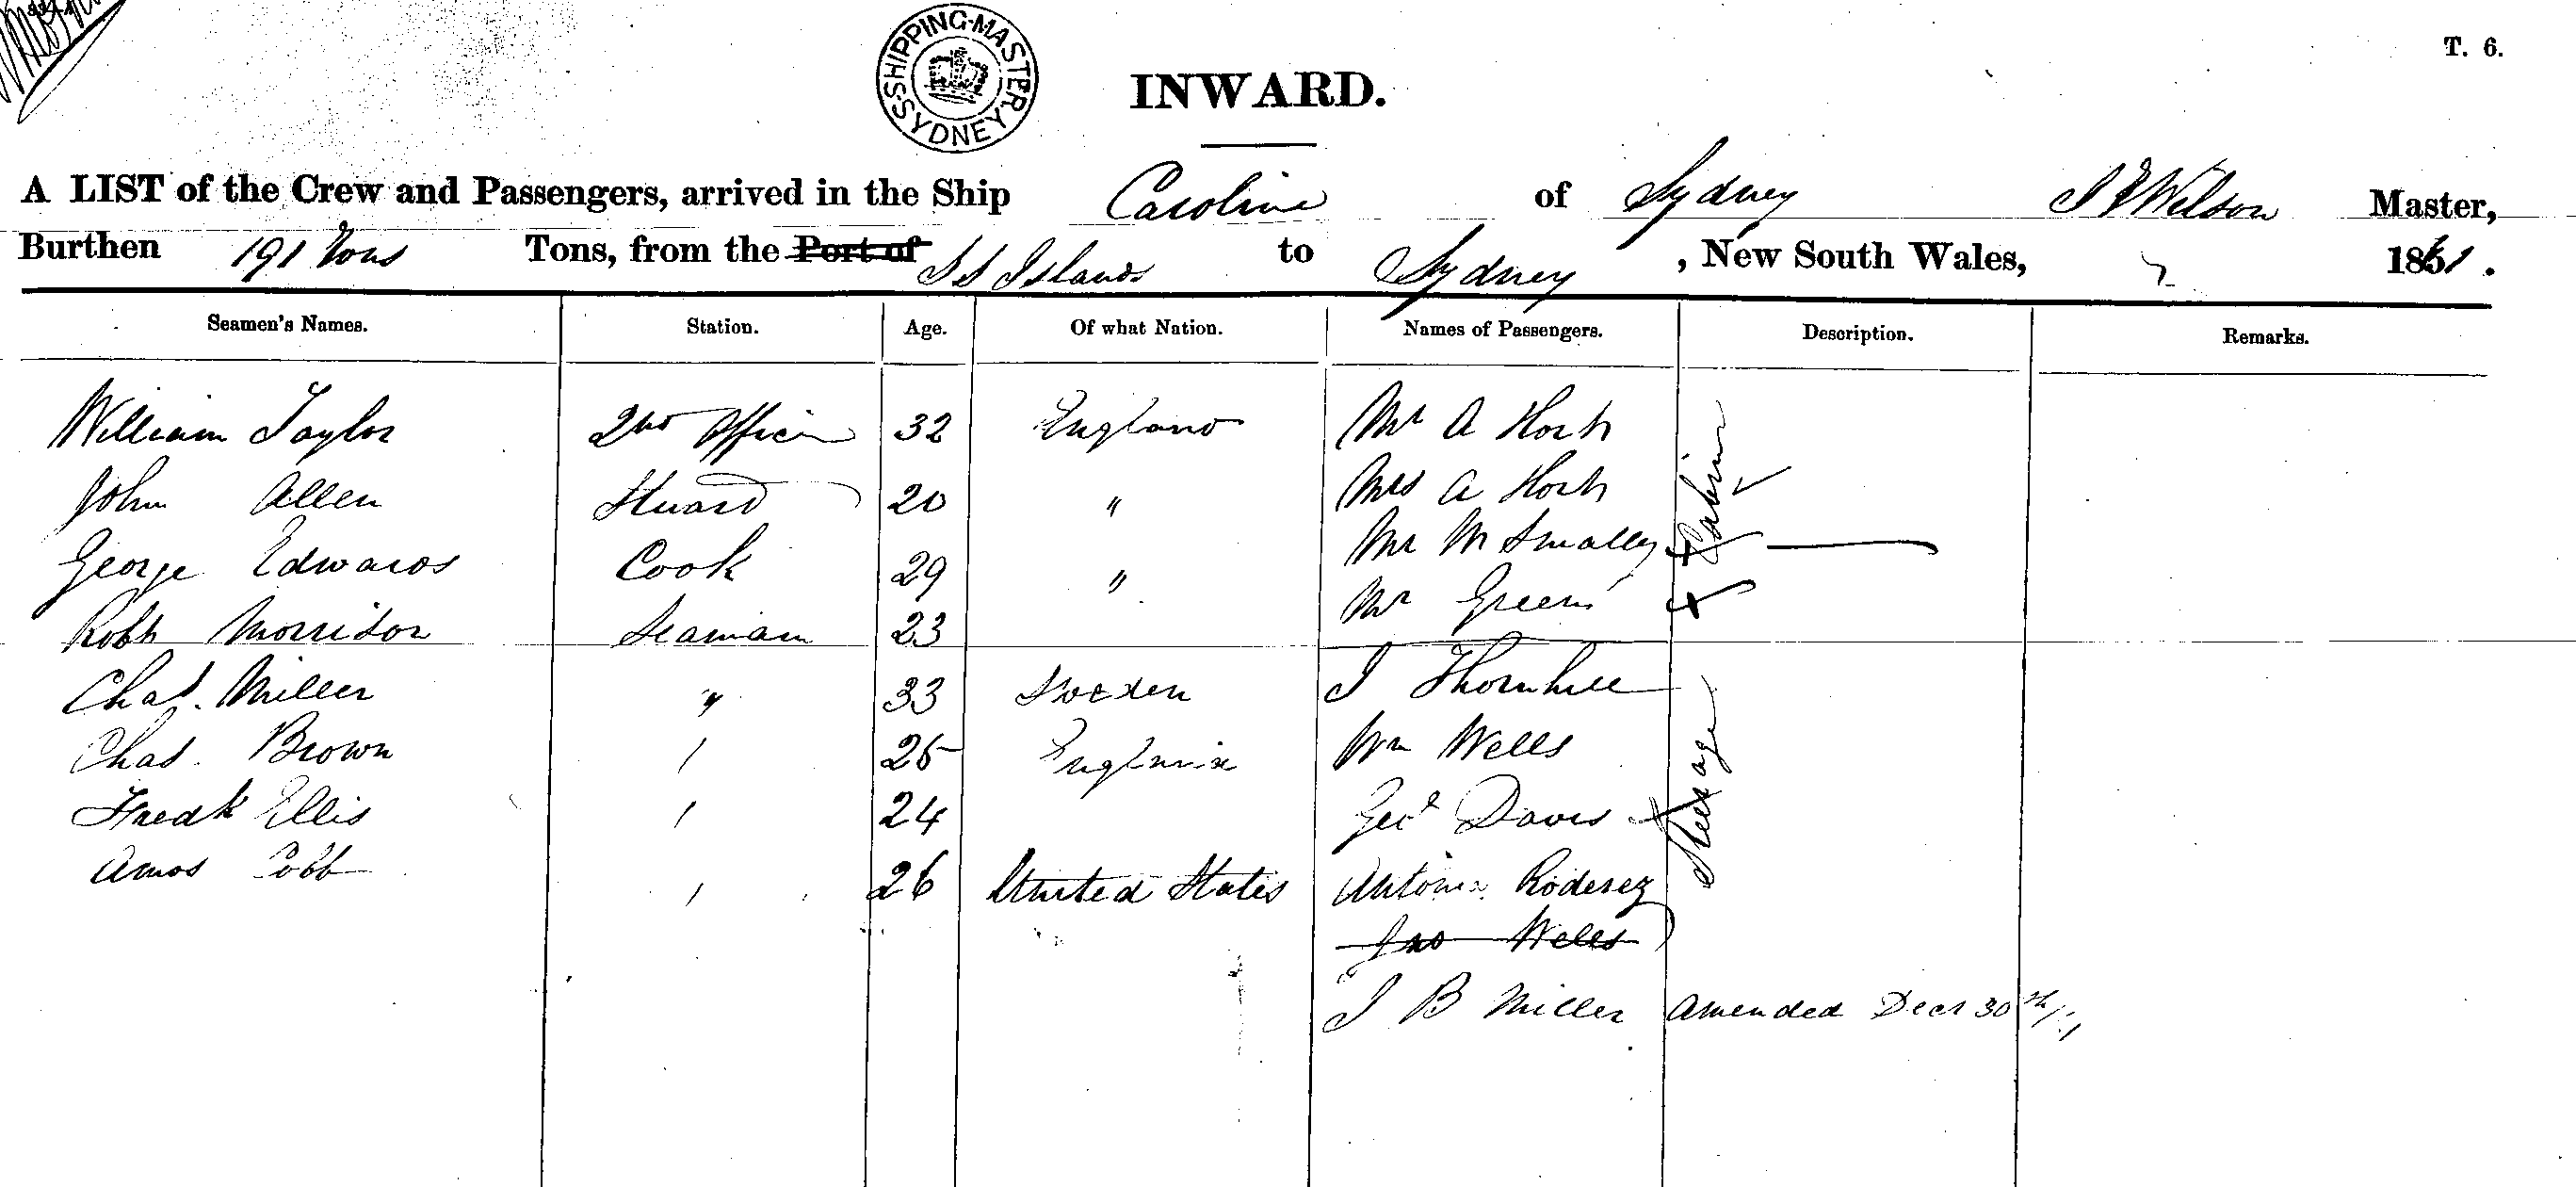 SHIPPING-MASTER.S SYDNEY.
T. 6.
INWARD.
A LIST of the Crew and Passengers, arrived in the Ship Caroline of Sydney J Wilson Master,
Burthen 191 Tons Tons, from the Port of S S Islands to Sydney, New South Wales, 1861.
Seamen's Names. Station. Age. Of what Nation. Names of Passengers. Description. Remarks.
William Taylor 2nd Officer 32 England Mr A Hork
John Allen Stuard 20 " Mrs A Hork
Cabin
George Edwards Cook 29 " Mr M Smalley
Mr Green
Robt Morrison Seamam 23
Chas. Miller " 33 Sweden J Thornhill
Steerage
Chas. Brown 25 England Wm Wells
Fredk Ellis 24 Geo Davis
Amos Cobb 26 United States Antonio Roderez
Jno Wells
J B Miller Amended Decr 30th